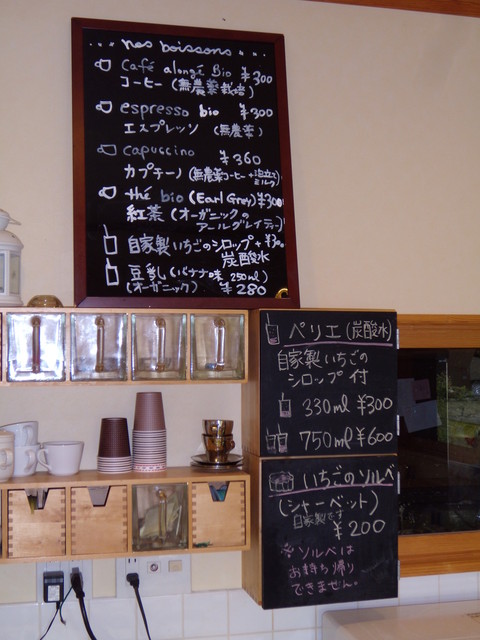 ... nos boissons ...
Café alongé Bio ¥300
コーヒー (無農薬栽培)
espresso bio ¥300
エスプレッソ (無農薬)
capuccino ¥360
カプチーノ (無農薬コーヒー+泡立て
ミルク)
thé bio (Earl Grey) ¥300
紅茶 (オーガニックの
アールグレイティー)
自家製いちごのシロップ+ ¥300
炭酸水
豆乳 (バナナ味 250ml)
(オーガニック) ¥280
ペリエ (炭酸水)
自家製いちごの
シロップ付
330ml ¥300
750ml ¥600
いちごのソルベ
(シャーベット)
自家製です
¥200
※ソルベは
お持ち帰り
できません。